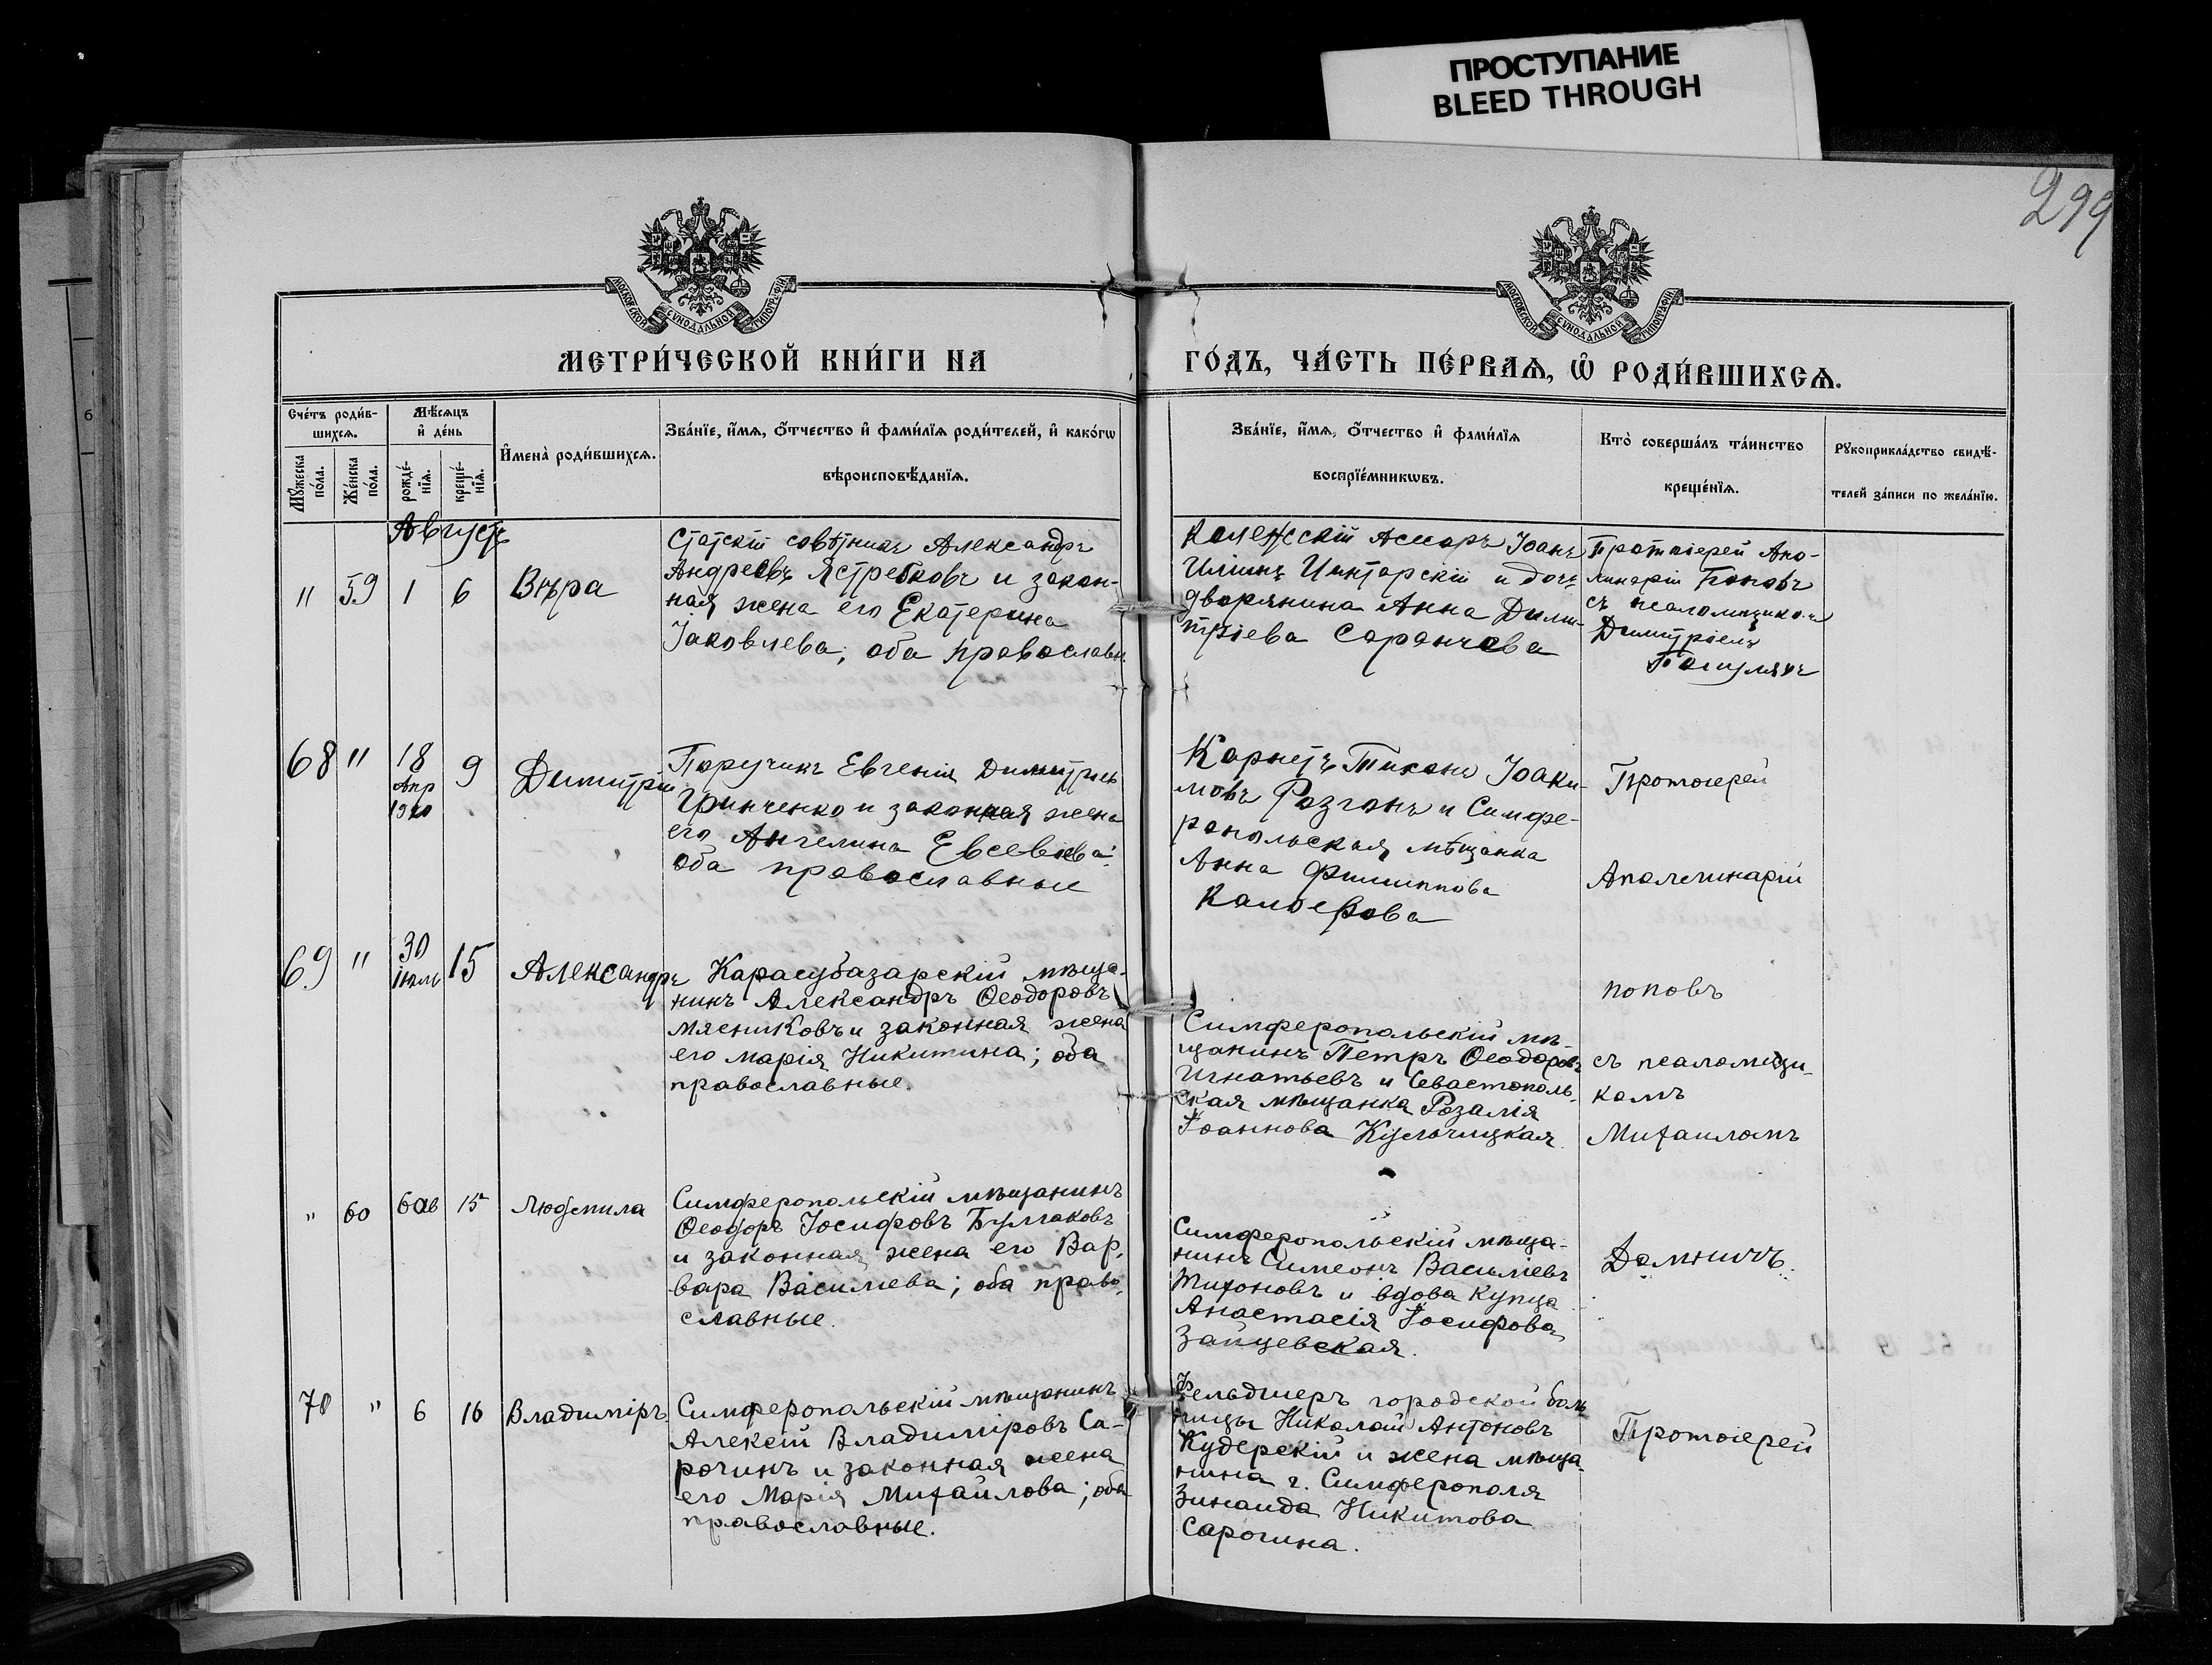 ПРОСТУПАНИЕ
BLEED THROUGH
299
МОСКОВСКОЙ СѴНОДАЛЬНОЙ ТИПОГРАФІИ
МОСКОВСКОЙ СѴНОДАЛЬНОЙ ТИПОГРАФІИ
МЕТРИ́ЧЕСКОЙ КНИ́ГИ НА
ГО́ДЪ, ЧА́СТЬ ПЕ́РВАѦ, Ѽ РОДИ́ВШИХСѦ.
Сче́тъ роди́в-
шихсѧ.
Мѣ́сѧцъ
и҆ де́нь
Мꙋ́жеска
по́ла.
Же́нска
по́ла.
рожде́-
нїѧ.
креще́-
нїѧ.
И҆мена̀ роди́вшихсѧ.
Зва́нїе, и҆́мѧ, ѻ҆́тчество и҆ фами́лїѧ роди́телей, и҆ како́гѡ
вѣроисповѣ́данїѧ.
Зва́нїе, и҆́мѧ, ѻ҆́тчество и҆ фами́лїѧ
воспрїе́мникѡвъ.
Кто̀ соверша́лъ та́инство
креще́нїѧ.
Рꙋкоприкла́дство свидѣ́-
телей за́писи по жела́нїю.
Августъ
" 59 1 6 Вѣра
Статскій совѣтникъ Александръ
Андреевъ Ястребковъ и закон-
ная жена его Екатерина
Іаковлева; оба православн.
Іоанъ
и дочь
дворянина Анна Дими-
тріева Саранчова
Протоіерей Апо-
линарій Поповъ
съ псаломщикомъ
Димитріемъ
68 " 18 Апр 1910 9 Димитрій
Поручикъ Евгеній Димитріев
Гринченко и законная жена
его Ангелина Евсевіева;
оба православные
Корнетъ Тихонъ Іоаки-
мовъ Розгонъ и Симфе-
ропольская мѣщанка
Анна Филиппова
Протоіерей
Аполлинарій
69 " 30 Іюль 15 Александръ
Карасубазарскій мѣща-
нинъ Александръ Ѳеодоровъ
Мясниковъ и законная жена
его Марія Никитина; оба
православные.
Симферопольскій мѣ-
щанинъ Петръ Ѳеодоровъ
Игнатьевъ и Севастополь-
ская мѣщанка Розалія
Іоаннова
поповъ
съ псаломщи-
комъ
Михаиломъ
" 60 6 ав 15 Людмила
Симферопольскій мѣщанинъ
Ѳеодоръ Іосифовъ Булгаковъ
и законная жена его Вар,
вара Василіева; оба право,
славные.
Симферопольскій мѣща-
нинъ Симеонъ Василіевъ
Тихоновъ и вдова купца
Анастасія Іосифова
Зайцевская.
Домничъ.
70 " 6 16 Владиміръ
Симферопольскій мѣщанинъ
Алексій Владиміровъ Са-
рочинъ и законная жена
его Марія Михайлова; оба
православные.
Фельдшеръ городской боль
ницы Николай Антоновъ
Кудерскій и жена мѣща-
нина г. Симферополя
Зинаида Никитова
Сарочина.
Протоіерей